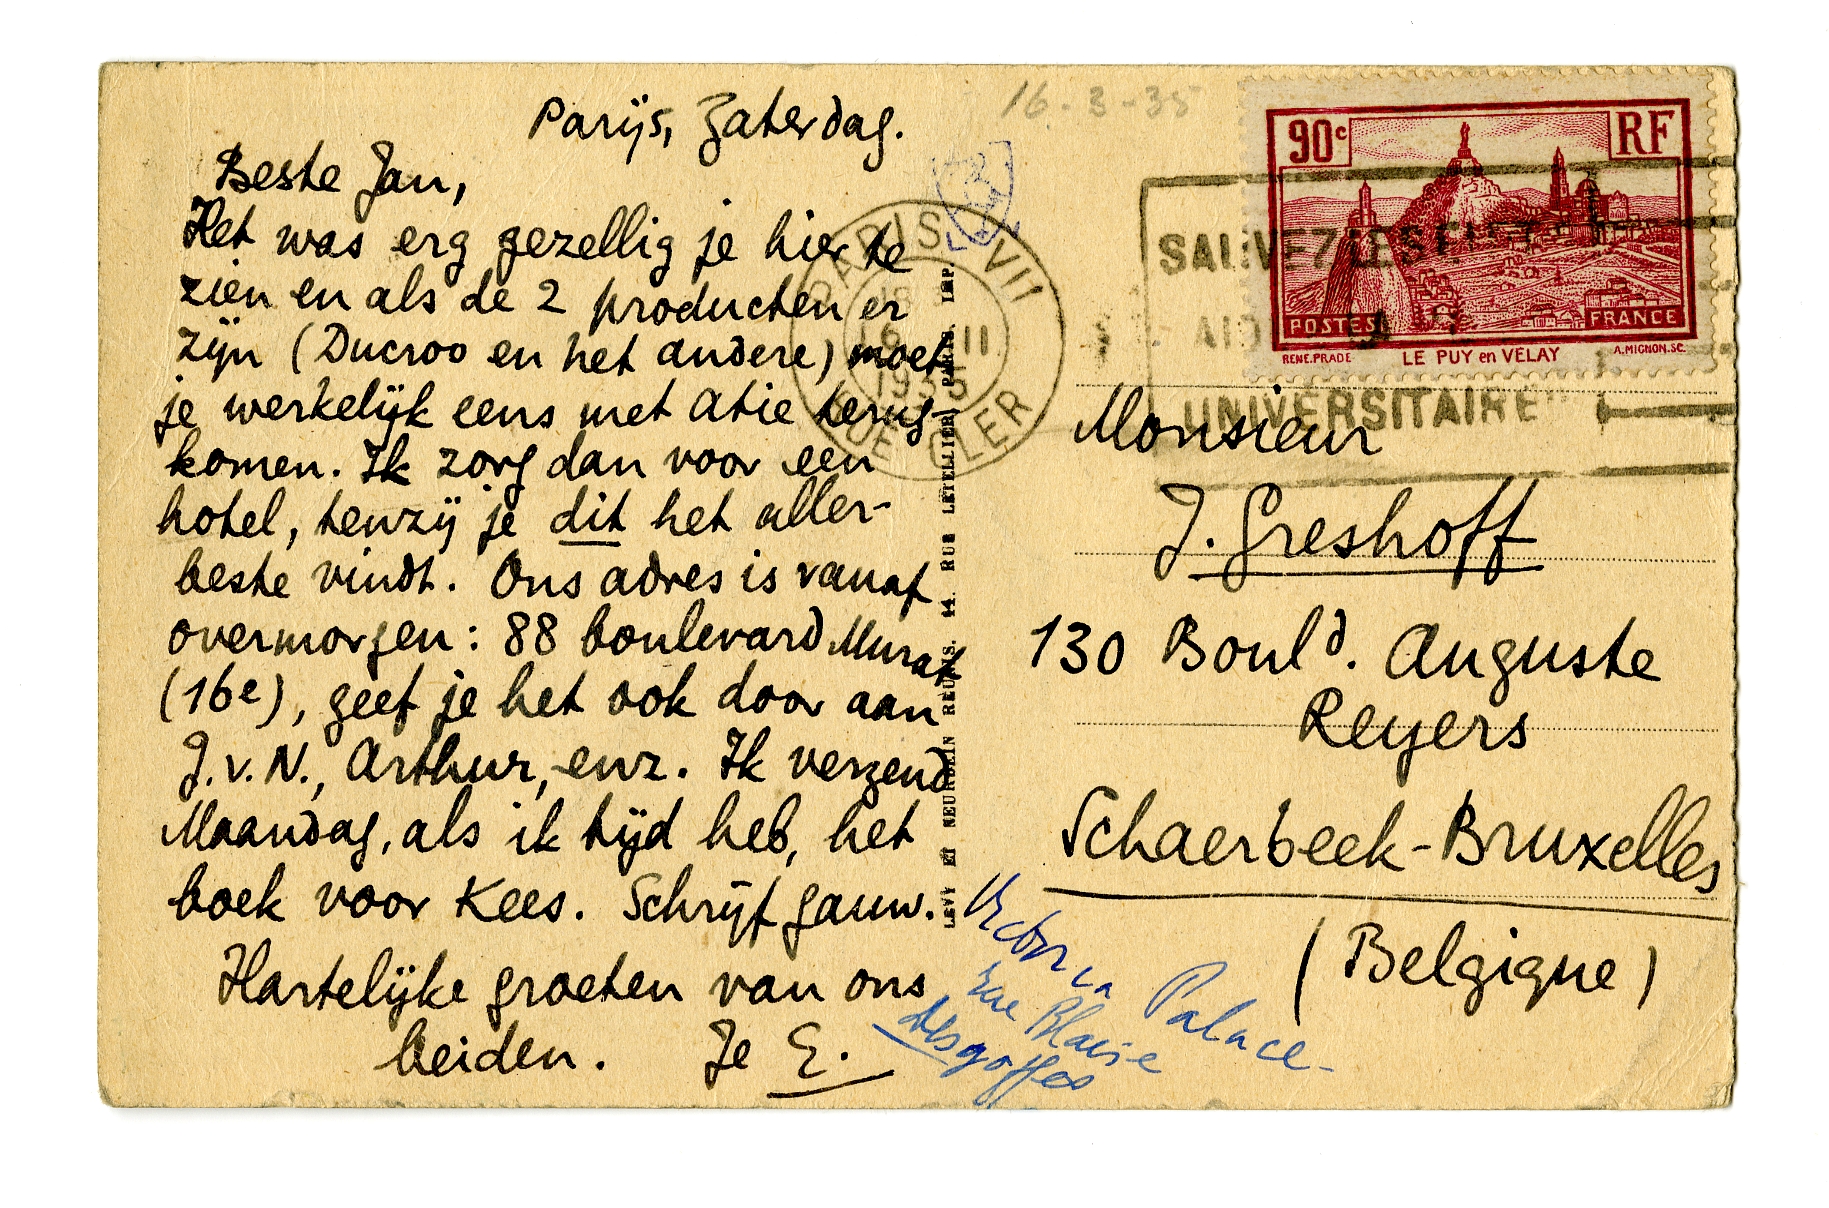 Parijs, Zaterdag.
Beste Jan,
Het was erg gezellig je hier te
zien en als de 2 producten er
zijn (Ducroo en het andere) moet
je werkelijk eens met Atie terug-
komen. Ik zorg dan voor een
hotel, tenzij je dit het aller-
beste vindt. Ons adres is vanaf
overmorgen: 88 boulevard Murat
(16e), geef je het ook door aan
J.v.N., Arthur, enz. Ik verzend
Maandag, als ik tijd heb, het
boek voor Kees. Schrijf gauw.
Hartelijke groeten van ons
beiden. Je E.
16-3-35
PARIS VII
18
16 III
1935
RUE CLER
SAUVEZ LES
UNIVERSITAIRE
90c RF
POSTES FRANCE
RENE.PRADE LE PUY en VELAY A.MIGNON.SC.
LEVY ET NEURDEIN REUNIS. 44. RUE LETELLIER, PARIS. IMP.
Monsieur
J. Greshoff
130 Bould. Auguste
Reyers
Schaerbeek-Bruxelles
(Belgique)
Victoria Palace
rue Blaise
desgoffes